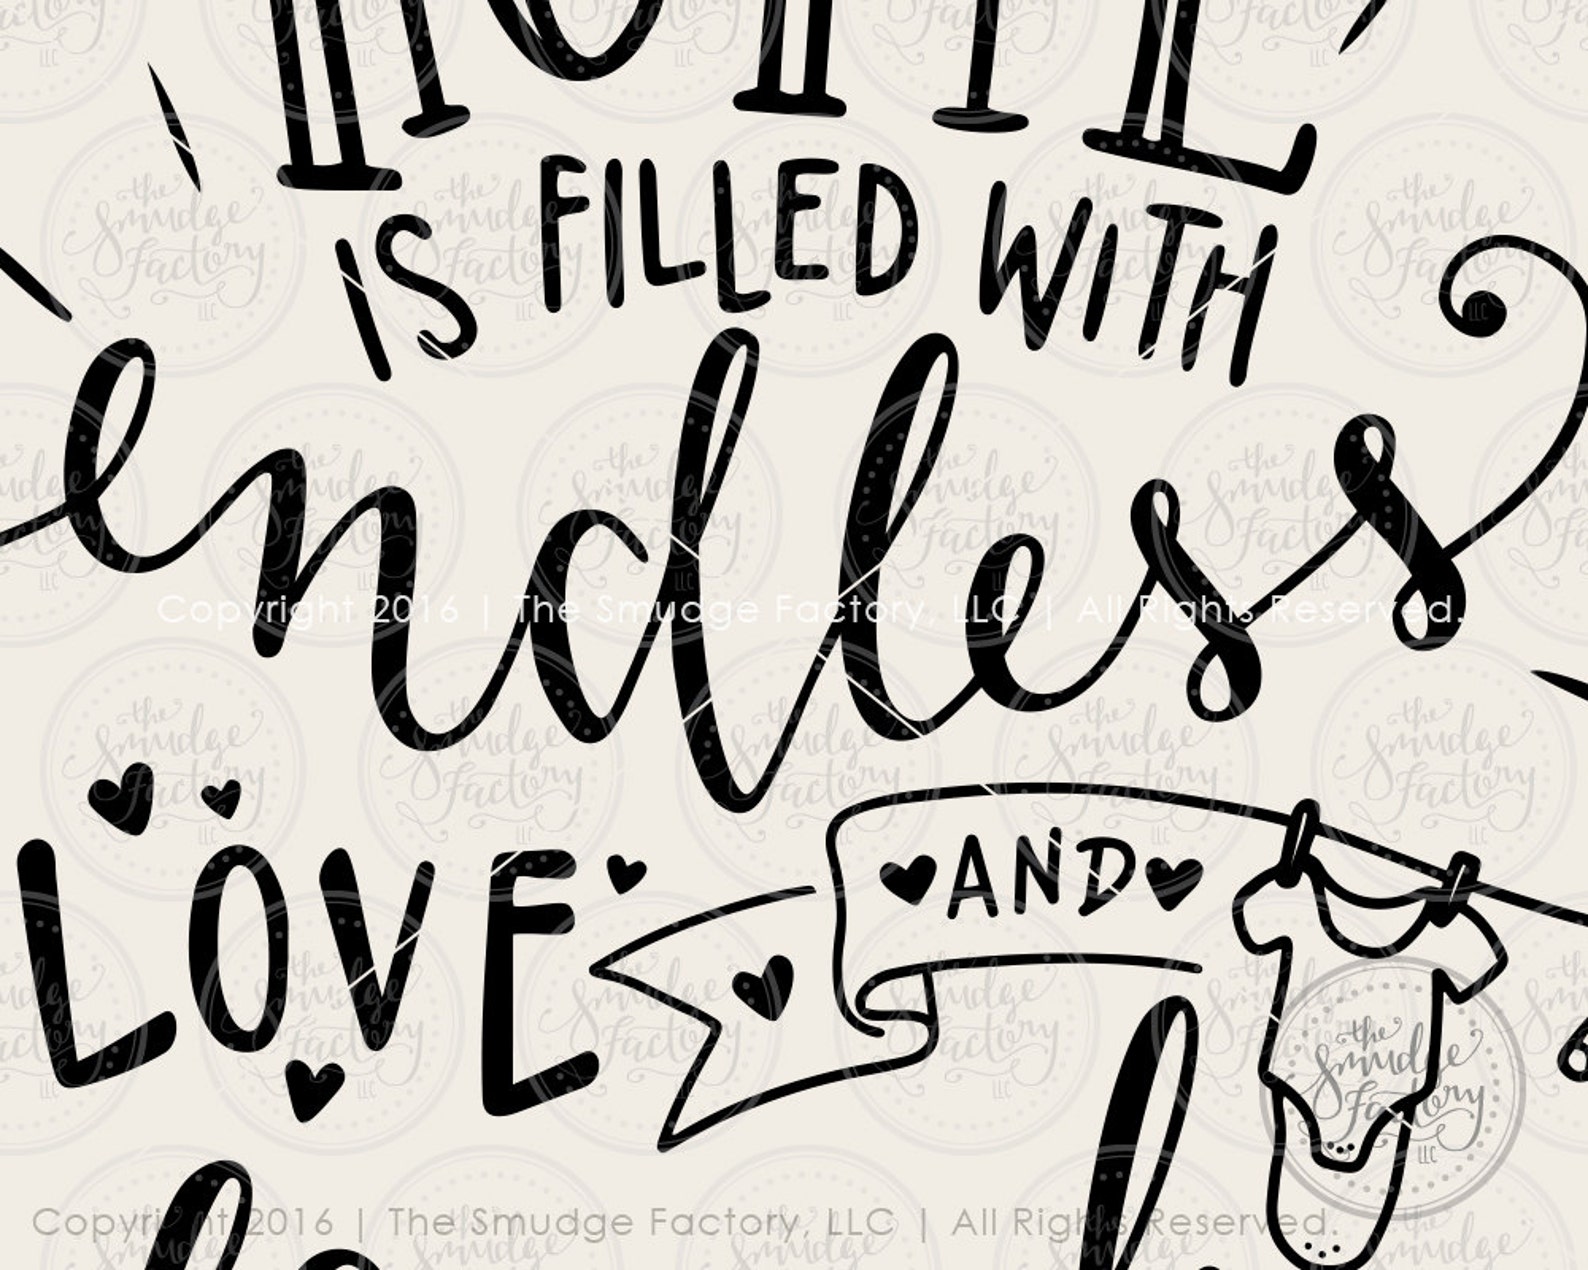 IS FILLED WITH
endless
Copyright 2016 | The Smudge Factory, LLC | All Rights Reserved.
LOVE
AND
the
Smudge
Factory
LLC
Copyright 2016 | The Smudge Factory, LLC | All Rights Reserved.